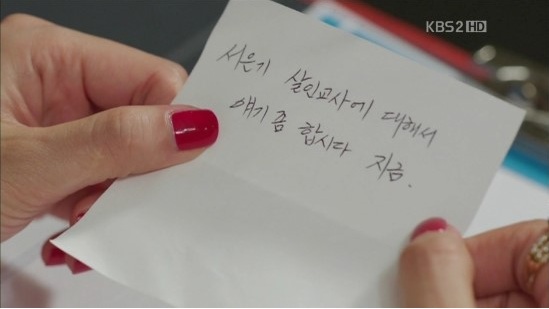 KBS2 HD
서은기 살인교사에 대해서
얘기 좀 합시다 지금.